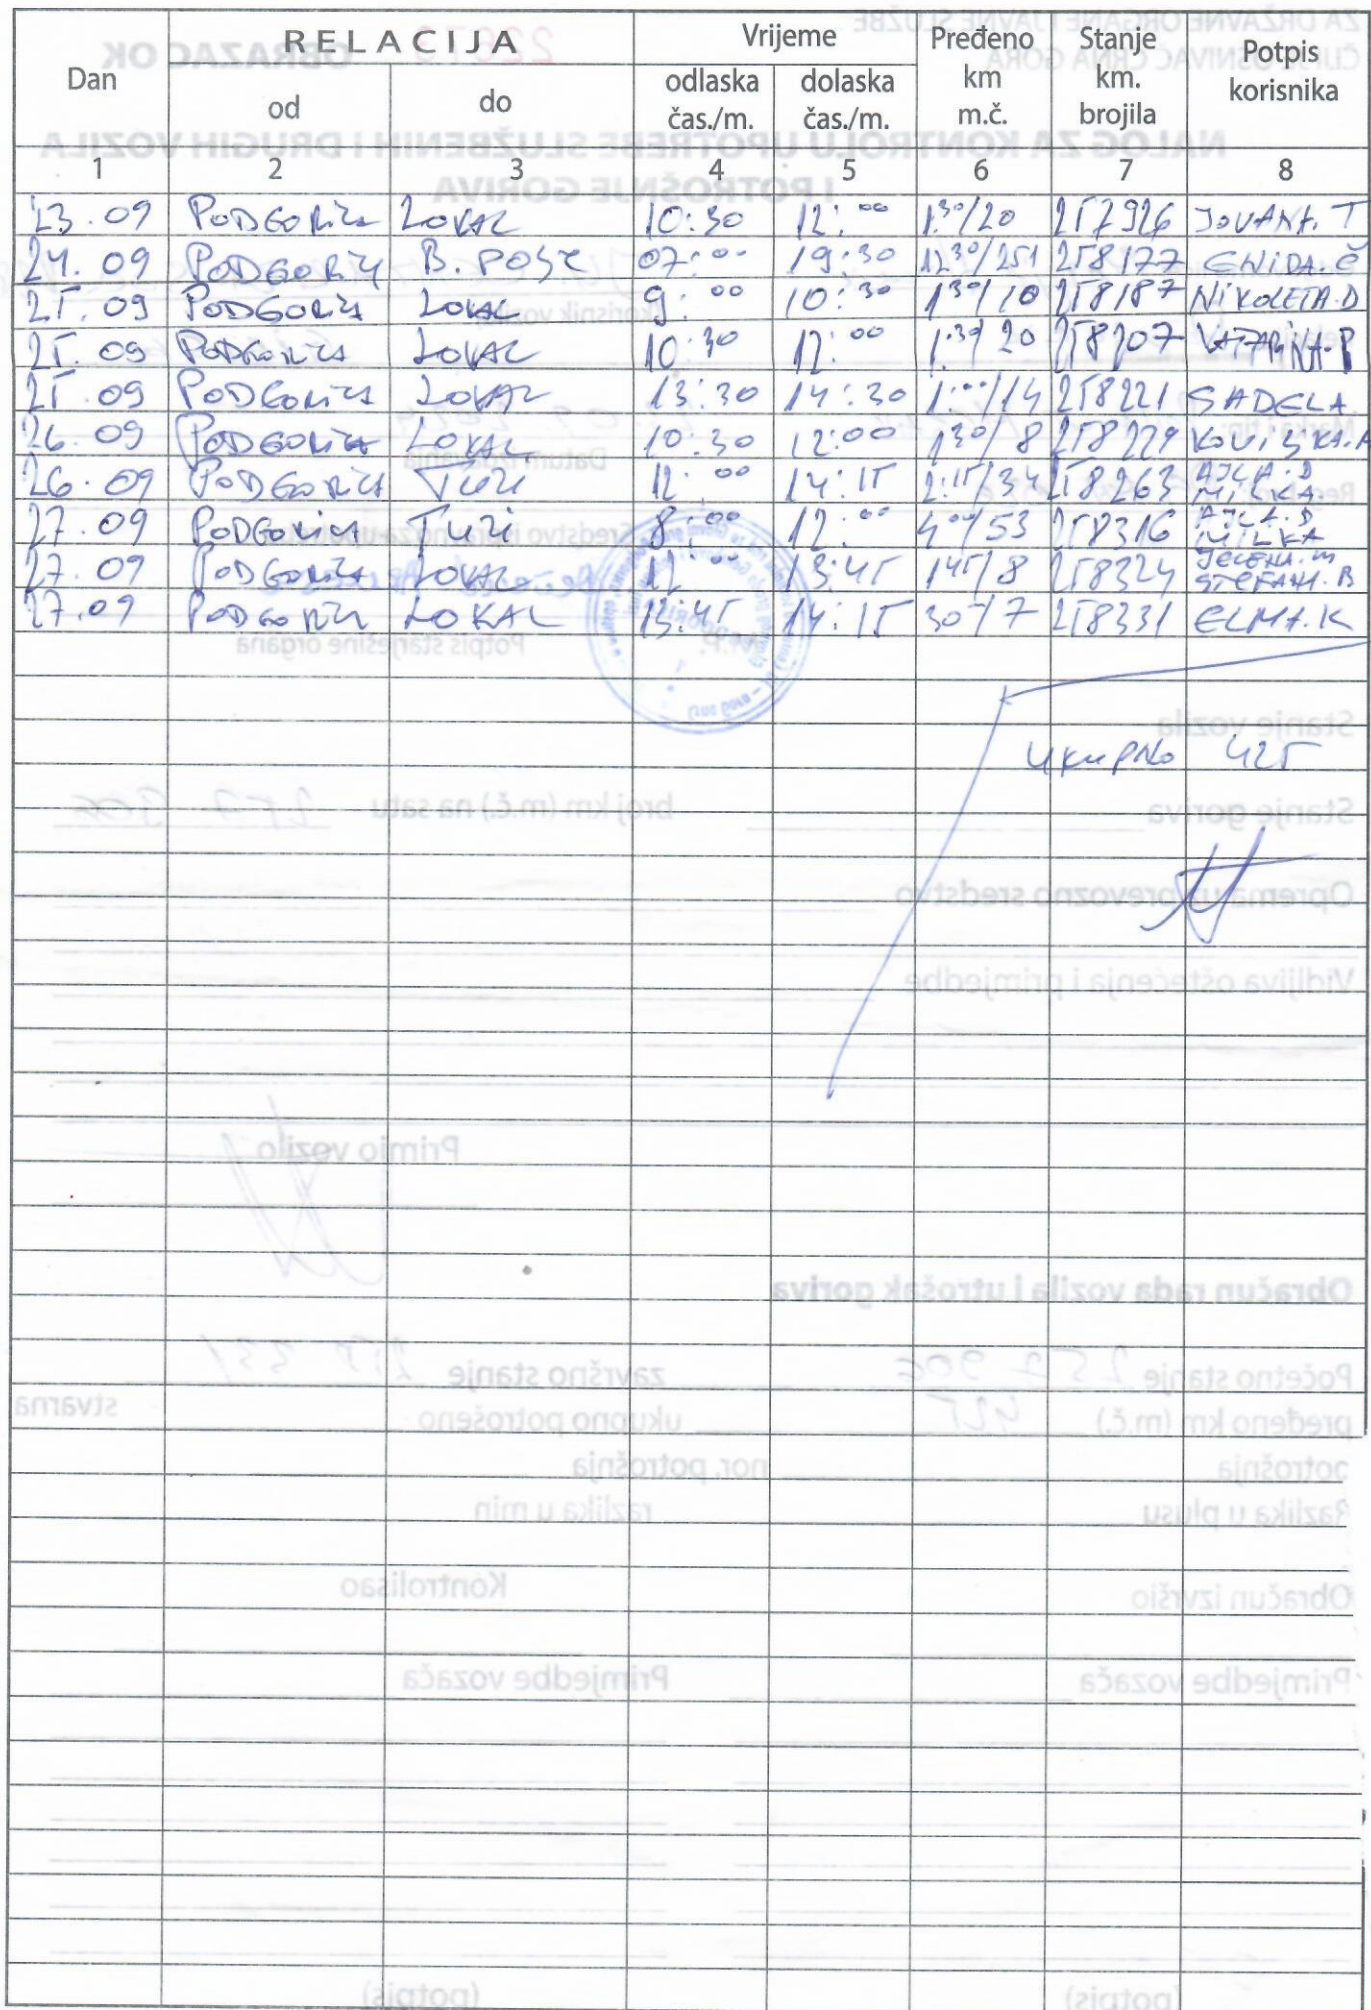 Dan RELACIJA Vrijeme Pređeno km m.č. Stanje km. brojila Potpis korisnika
od do odlaska čas./m. dolaska čas./m.
1 2 3 4 5 6 7 8
23.09 PODGORICA LOKAL 10:30 12:00 1:30/20 257926 JOVANA.T
24.09 PODGORICA B. POLJE 07:00 19:30 12:30/251 258177 ENIDA.Č
25.09 PODGORICA LOKAL 9:00 10:30 1:30/10 258187 NIKOLETA.D
25.09 PODGORICA LOKAL 10:30 12:00 1:30/20 258207 KATARINA.P
25.09 PODGORICA LOKAL 13:30 14:30 1:00/14 258221 SADELA
26.09 PODGORICA LOKAL 10:30 12:00 1:30/8 258229
26.09 PODGORICA TUZI 12:00 14:15 2:15/34 258263 AJLA.D MILKA
27.09 PODGORICA TUZI 8:00 12:00 4:00/53 258316 AJLA.D MILKA
27.09 PODGORICA LOKAL 12:00 13:45 1:45/8 258324 JELENA.M STEFANI.B
27.09 PODGORICA LOKAL 13:45 14:15 30/7 258331 ELMA.K
UKUPNO 425